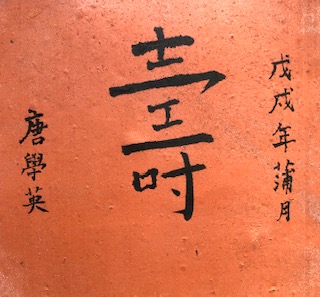 戊戌年蒲月
壽
唐學英